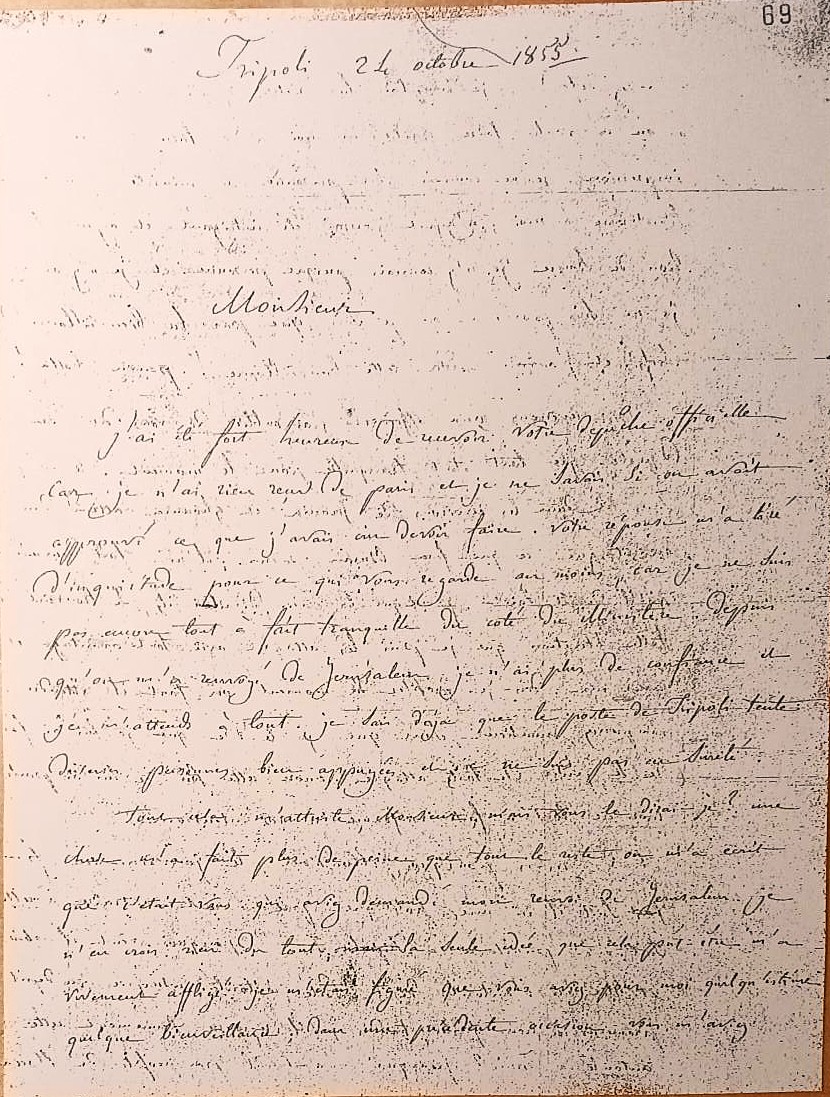 69
Tripoli 24 octobre 1855
Monsieur
j'ai été fort heureux de recevoir votre depêche officielle
Car je n'ai rien reçu de paris et je ne savais si on avait
approuvé ce que j'avais cru devoir faire. Votre réponse m'a tiré
d'inquiétude pour ce qui vous regarde au moins, car je ne suis
pas encore tout à fait tranquille du coté du Ministère. depuis
qu'on m'a renvoyé de Jerusalem je n'ai plus de confiance et
je m'attends à tout. je sais déja que le poste de Tripoli tente
diverses personnes bien appuyées et je ne suis pas en sureté.
Tout cela m'attriste, Monsieur, mais vous le dirai-je? une
chose m'a fait plus de peine que tout le reste, on m'a écrit
que c'était vous qui aviez demandé mon renvoi de Jerusalem je
n'en crois rien du tout, mais la seule idée que cela peut être m'a
vivement affligé. je m'étais figuré que vous aviez pour moi quelqu'estime
quelque bienveillance, dans une précédente occasion vous m'aviez